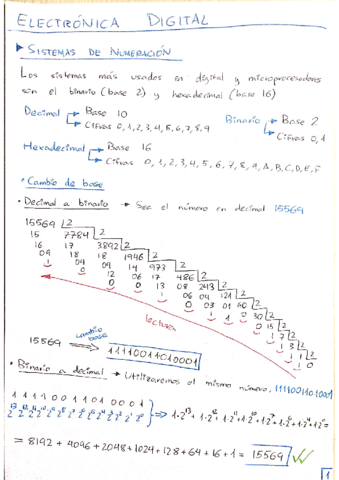 ELECTRÓNICA DIGITAL
SISTEMAS DE NUMERACIÓN
Los sistemas más usados en digital y microprocesadores
son el binario (base 2) y hexadecimal (base 16)
Decimal → Base 10
→ Cifras 0,1,2,3,4,5,6,7,8,9
Binario → Base 2
→ Cifras 0,1
Hexadecimal → Base 16
→ Cifras 0,1,2,3,4,5,6,7,8,9,A,B,C,D,E,F
• Cambio de base
• Decimal a binario → Sea el número en decimal 15569
15569 |2
15 7784 |2
16 17 3892 |2
09 18 18 1946 |2
1 04 09 14 973 |2
0 0 12 06 17 486 |2
0 0 13 08 243 |2
1 06 04 121 |2
0 03 01 60 |2
1 1 0 30 |2
0 15 |2
1 7 |2
1 3 |2
1 1 |2
1 0
lectura
15569 cambio base ⟹ 11110011010001
• Binario a decimal → Utilizaremos el mismo número, 11110011010001
1 1 1 1 0 0 1 1 0 1 0 0 0 1
2¹³ 2¹² 2¹¹ 2¹⁰ 2⁹ 2⁸ 2⁷ 2⁶ 2⁵ 2⁴ 2³ 2² 2¹ 2⁰ } ⟹ 1·2¹³ + 1·2¹² + 1·2¹¹ + 1·2¹⁰ + 1·2⁷ + 1·2⁶ + 1·2⁴ + 1·2⁰ =
= 8192 + 4096 + 2048 + 1024 + 128 + 64 + 16 + 1 = 15569
1